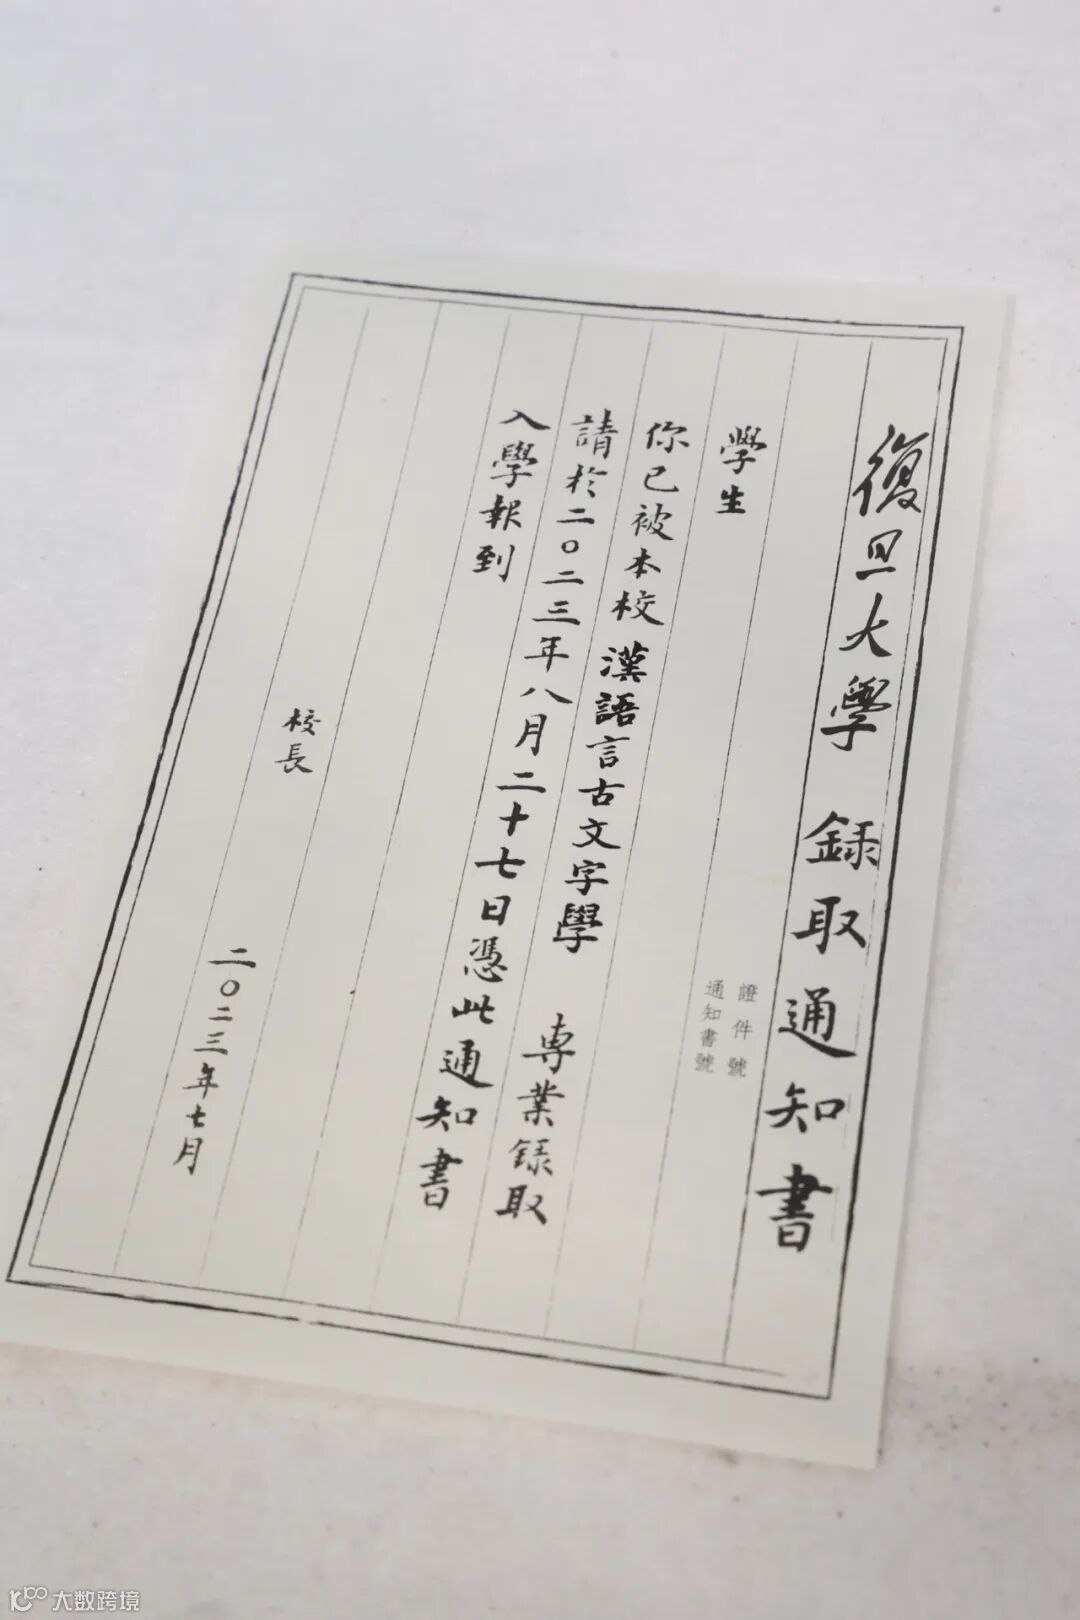 復旦大學 錄取通知書
證件號
通知書號
學生
你已被本校漢語言古文字學 專業錄取
請於二〇二三年八月二十七日憑此通知書
入學報到
校長
二〇二三年七月
大数跨境